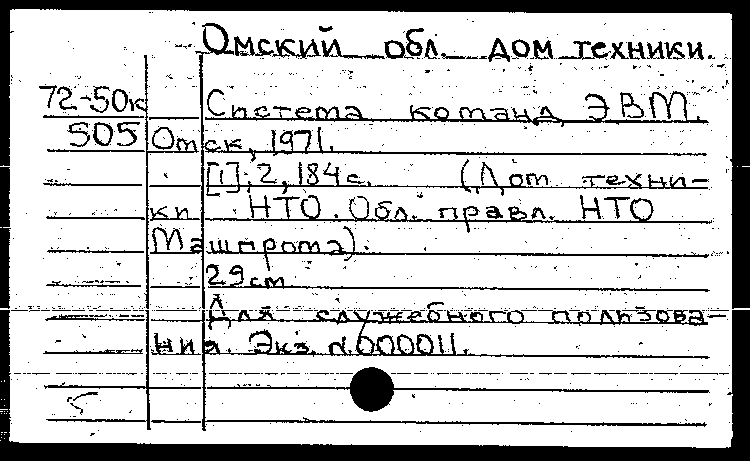 Омский обл. дом техники.
72-50к Система команд ЭВМ.
505 Омск, 1971.
[1]; 2, 184 с. (Дом техни-
ки НТО. Обл. правл. НТО
Машпрома).
29 см
Для служебного пользова-
ния. Экз. N.000011.